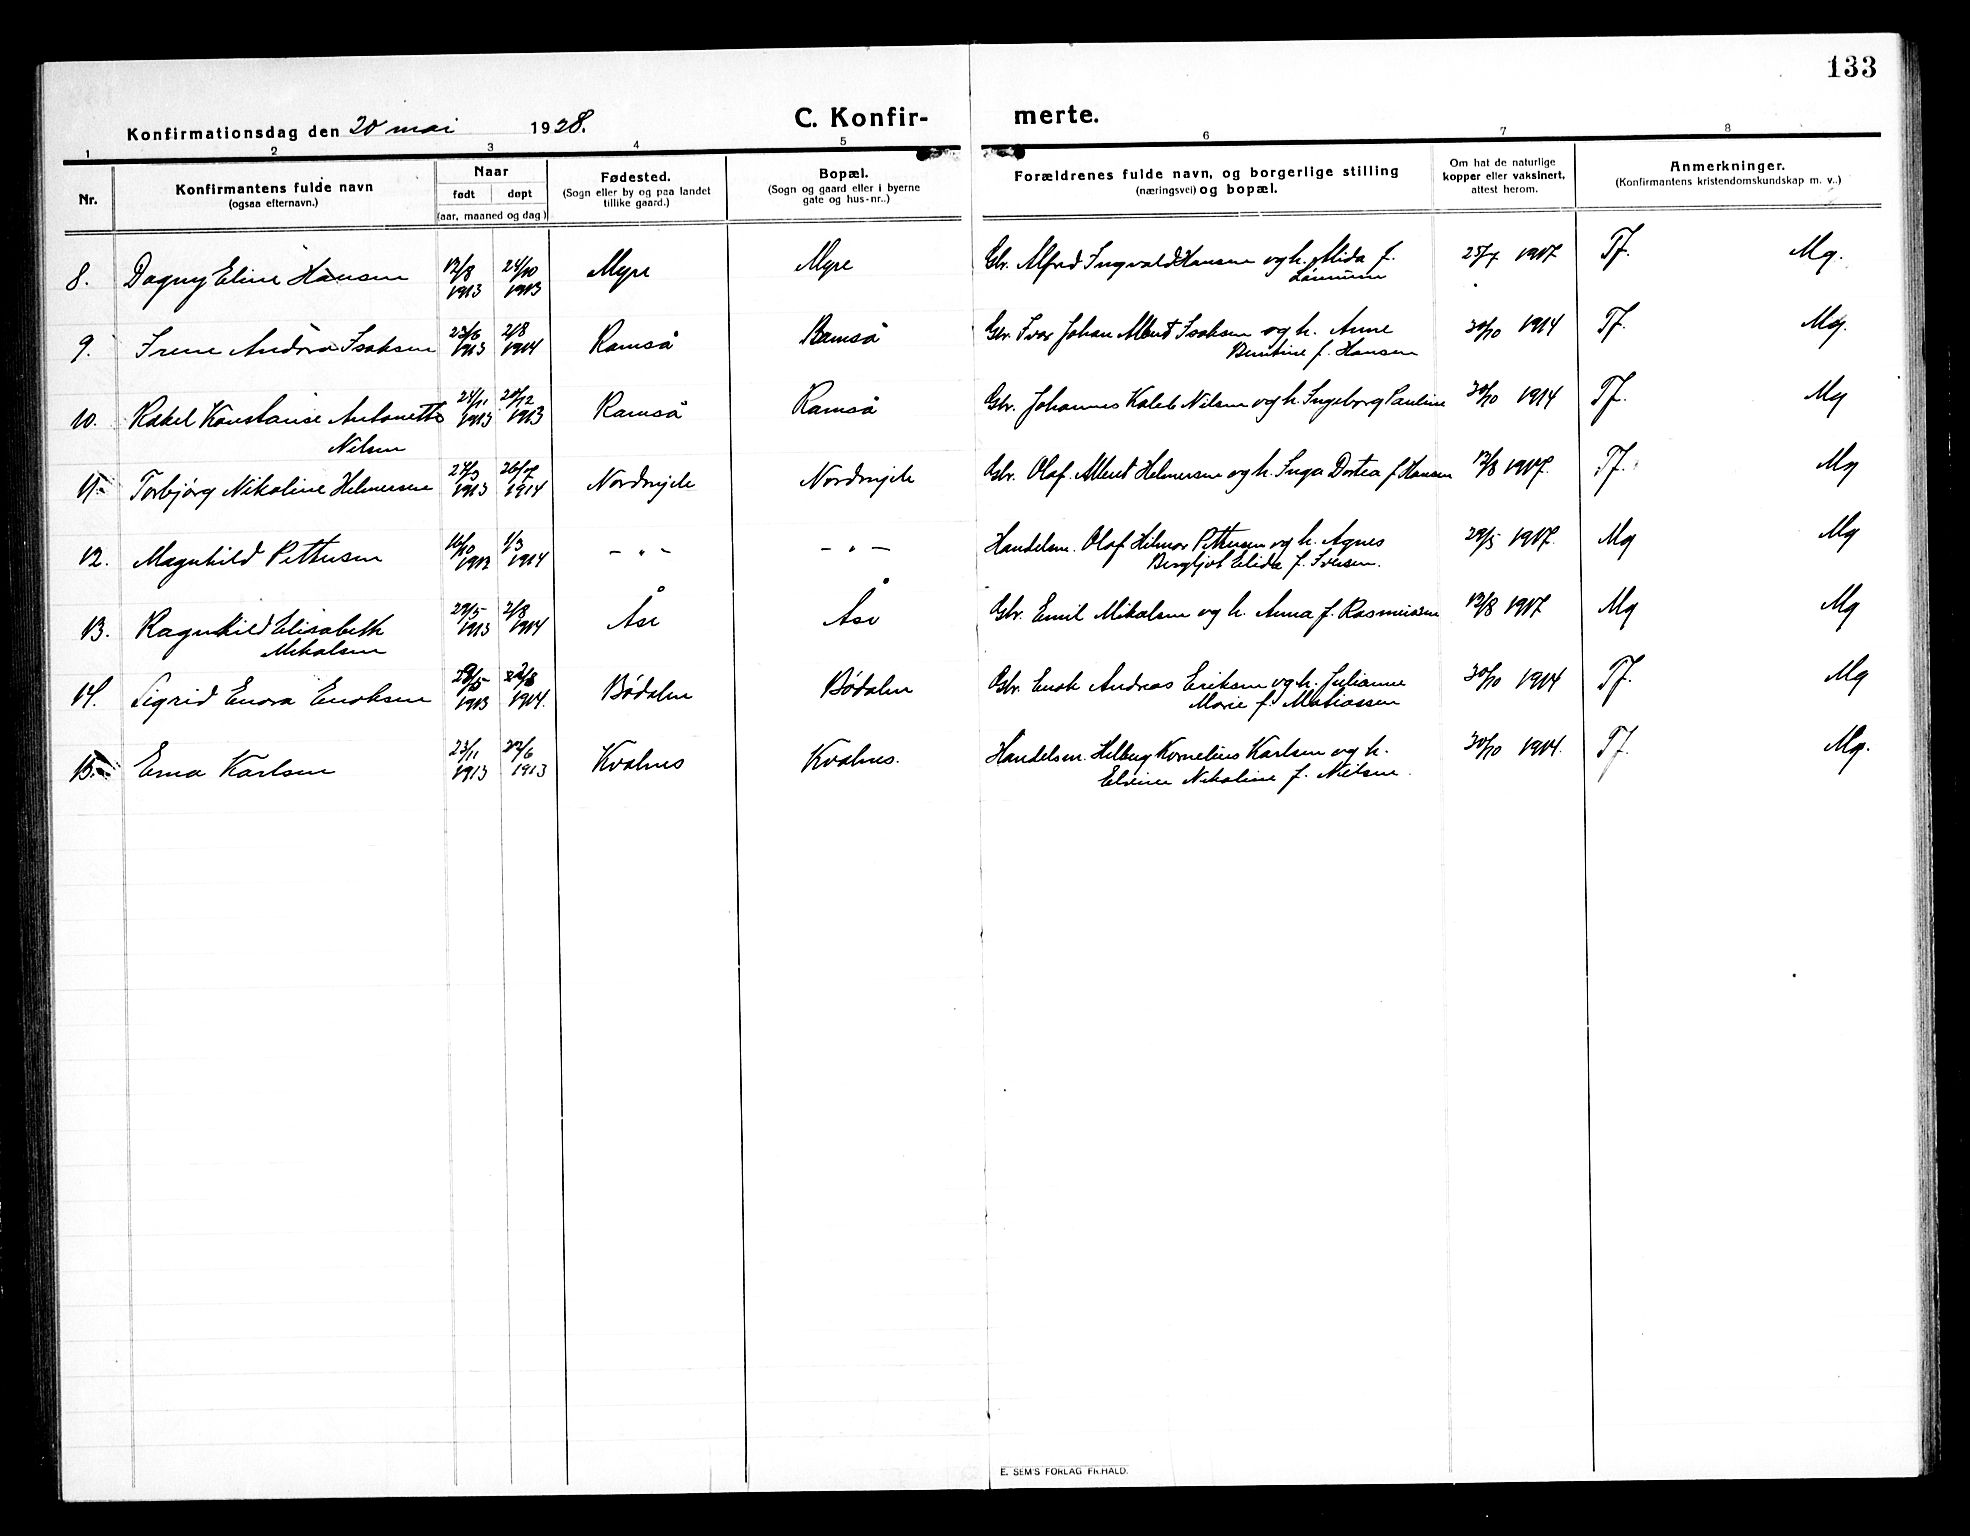 133
Konfirmationsdag den 20 mai 1928.
C. Konfir- merte.
1 2 3 4 5 6 7 8
Nr.
Konfirmantens fulde navn
(ogsaa efternavn.)
Naar
født døpt
(aar, maaned og dag)
Fødested.
(Sogn eller by og paa landet
tillike gaard.)
Bopæl.
(Sogn og gaard eller i byerne
gate og hus-nr.)
Forældrenes fulde navn, og borgerlige stilling
(næringsvei) og bopæl.
Om hat de naturlige
kopper eller vaksinert,
attest herom.
Anmerkninger.
(Konfirmantens kristendomskundskap m. v.)
8. Dagny Eline Hansen 12/8 24/10 Myre Myre Gbr. Alfred Ingvald Hansen og h. Alida f. 25/7 1917 Tf. Mg.
1913 1913
9. Irene Andora Isaksen 2/8 Ramså Ramså Gbr. Ivar Johan Albert Isaksen og h. Anne 30/10 1914 Tf. Mg.
1913 1914 Berntine f. Hansen
10. Rakel Konstanse Antonette 24/11 20/12 Ramså Ramså Gbr. Johannes Kaleb Nilsen og h. Ingeborg Pauline 30/10 1914 Tf. Mg
1913 1913
Nilsen
11. Torbjørg Nikoline Helmersen Nordmjele Nordmjele Gbr. Olaf Albert Helmersen og h. Inga Dortea f Hansen 12/8 1917. Tf. Mg
1913 1914
12. Magnhild Pettersen 16/10 1/3 - " - - " - Handelsm. Olaf Hilmar Pettersen og h. Agnes 29/5 1917. Mg Mg
1914 Bergljot Elida f. Iversen.
13. Ragnhild Elisabeth 29/5 2/8 Åse Åse Gbr. Emil Mikalsen og h. Anna f. Rasmussen 12/8 1917 Mg Mg
1913 1914
Mikalsen
14. Sigrid Enora Enoksen Bødalen Bødalen Gbr. Enok Andreas Eriksen og h. Julianne 30/10 1914 Tf. Mg
1913 1914. Marie f. Matiassen
15. Erna Karlsen 23/11 22/6 Kvalnes Kvalnes. Handelsm. Hilberg Kornelius Karlsen og h. 30/10 1914. Tf. Mg.
1913 1913 Nikoline f. Nilsen.
E. SEM'S FORLAG FR.HALD.